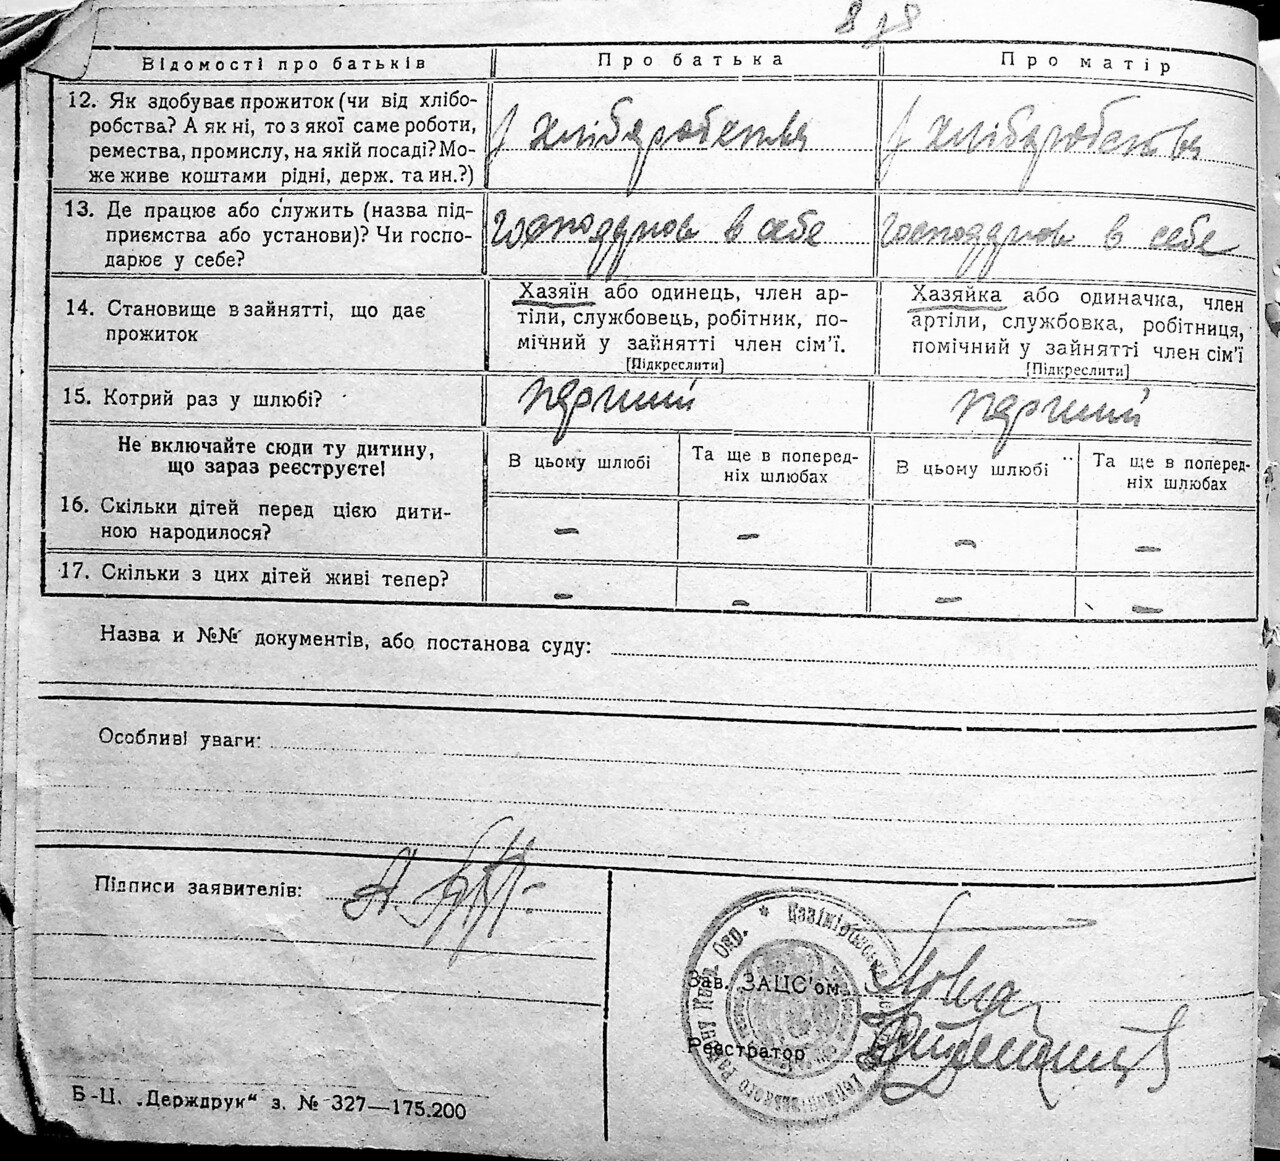 8 8
Відомості про батьків
Про батька
Про матір
12. Як здобуває прожиток (чи від хлібо-
робства? А як ні, то з якої саме роботи,
ремества, промислу, на якій посаді? Мо-
же живе коштами рідні, держ. та ин.?)
з хліборобства
з хліборобства
13. Де працює або служить (назва під-
приємства або установи)? Чи госпо-
дарює у себе?
в себе
в себе
14. Становище в зайнятті, що дає
прожиток
Хазяїн або одинець, член ар-
тіли, службовець, робітник, по-
мічний у зайнятті член сім'ї.
[Підкреслити]
Хазяйка або одиначка, член
артіли, службовка, робітниця,
помічний у зайнятті член сім'ї
[Підкреслити]
15. Котрий раз у шлюбі?
перший
перший
Не включайте сюди ту дитину,
що зараз реєструєте!
В цьому шлюбі
Та ще в поперед-
ніх шлюбах
В цьому шлюбі
Та ще в поперед-
ніх шлюбах
16. Скільки дітей перед цією дити-
ною народилося?
– – – –
17. Скільки з цих дітей живі тепер?
– – – –
Назва и №№ документів, або постанова суду:
Особливі уваги:
Підписи заявителів:
Зав. ЗАЦС'ом
Реєстратор
Б-Ц. „Держдрук“ з. № 327—175.200